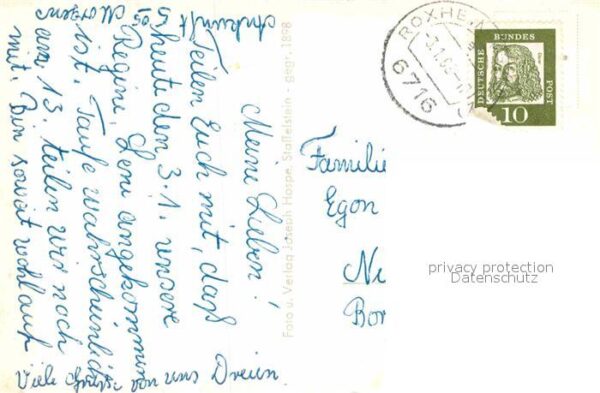 Meine Lieben!
Teilen Euch mit, daß
heute den 3.1. unsere
Regine, Leni angekommen
ist. Taufe wahrscheinlich
am 13. teilen wir noch
mit. Bin soweit wohlauf
Viele Grüsse von uns Dreien.
Ankunft
5 50
Morgens
Foto u. Verlag Joseph Hospe, Staffelstein - gegr. 1898
ROXHEIM
3.1.6
6716
DEUTSCHE BUNDESPOST
Dürer
10
Familie
Egon
Ne
Bor
privacy protection
Datenschutz